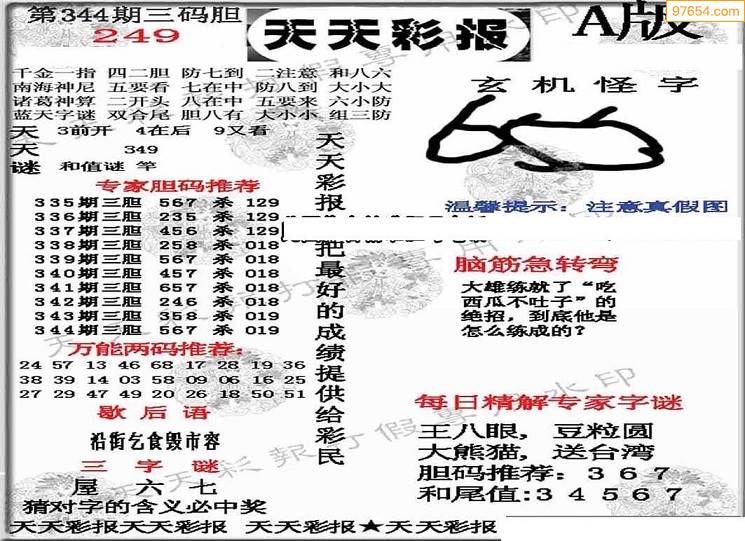 第344期三码胆
249
天天彩报
A版
97654.com
千金一指 四二胆 防七到 二注意 和八六
南海神尼 五要看 七在中 防八到 大小大
诸葛神算 二开头 八在中 五要来 六小防
蓝天字谜 双合尾 胆八有 大小小 组三防
天 3前开 4在后 9又看
天 349
谜 和值谜 竿
专家胆码推荐
335期三胆 567 杀 129
336期三胆 235 杀 129
337期三胆 456 杀 129
338期三胆 258 杀 018
339期三胆 560 杀 018
340期三胆 457 杀 018
341期三胆 657 杀 018
342期三胆 246 杀 018
343期三胆 358 杀 019
344期三胆 567 杀 019
万能两码推荐:
24 57 13 46 68 17 28 19 36
38 39 14 03 58 09 06 16 25
27 29 47 49 20 26 18 50 51
歇后语
沿街乞食毁市容
三字谜
屋 六 七
猜对字的含义必中奖
天天彩报
把最好的成绩提供给彩民
玄机怪字
温馨提示: 注意真假图
脑筋急转弯
大雄练就了“吃
西瓜不吐子”的
绝招, 到底他是
怎么练成的?
每日精解专家字谜
王八眼, 豆粒圆
大熊猫, 送台湾
胆码推荐: 3 6 7
和尾值: 3 4 5 6 7
天天彩报天天彩报 天天彩报★天天彩报